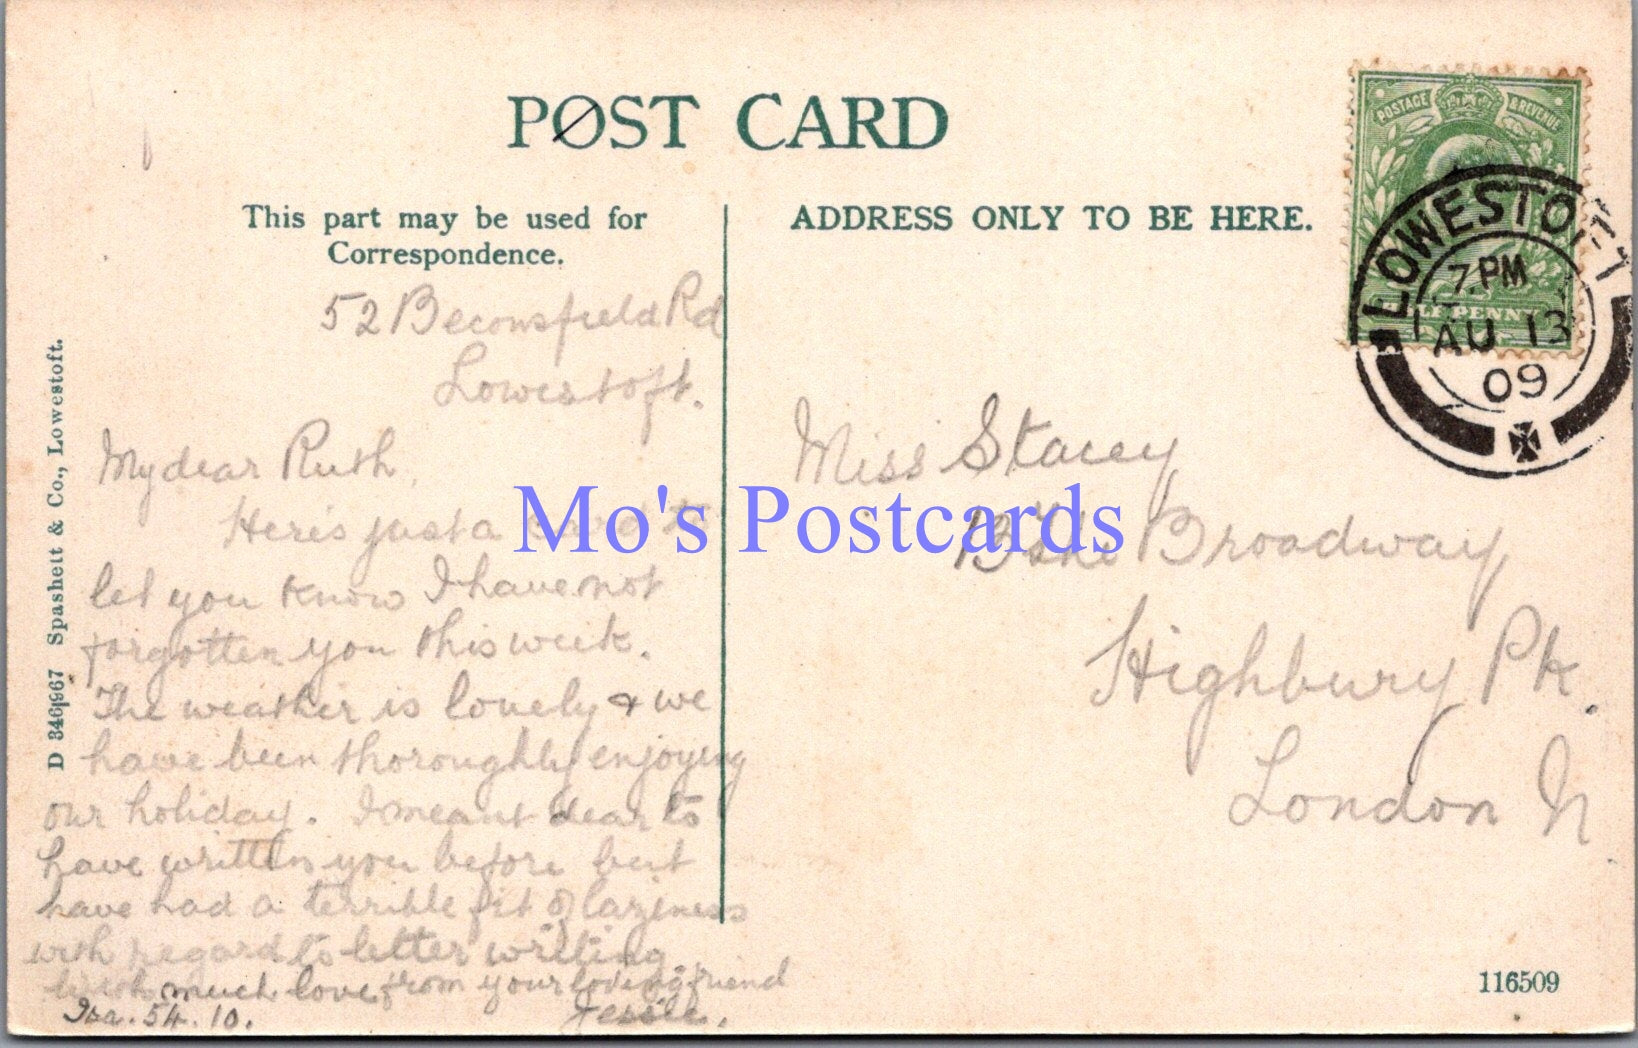 POST CARD
This part may be used for
Correspondence.
ADDRESS ONLY TO BE HERE.
POSTAGE & REVENUE
LOWESTOFT
7. PM
AU 13
09
52 Beconsfield Rd
Lowestoft.
My dear Ruth,
Here's just a card to
let you know I have not
forgotten you this week.
The weather is lovely & we
have been thoroughly enjoying
our holiday. I meant dear to
have written you before but
have had a terrible fit of laziness
with regard to letter writing.
With much love from your loving friend
Jessie.
Isa. 54. 10.
Miss Stacey
13 The Broadway
Highbury Pk.
London N
D 346967 Spashett & Co., Lowestoft.
116509
Mo's Postcards